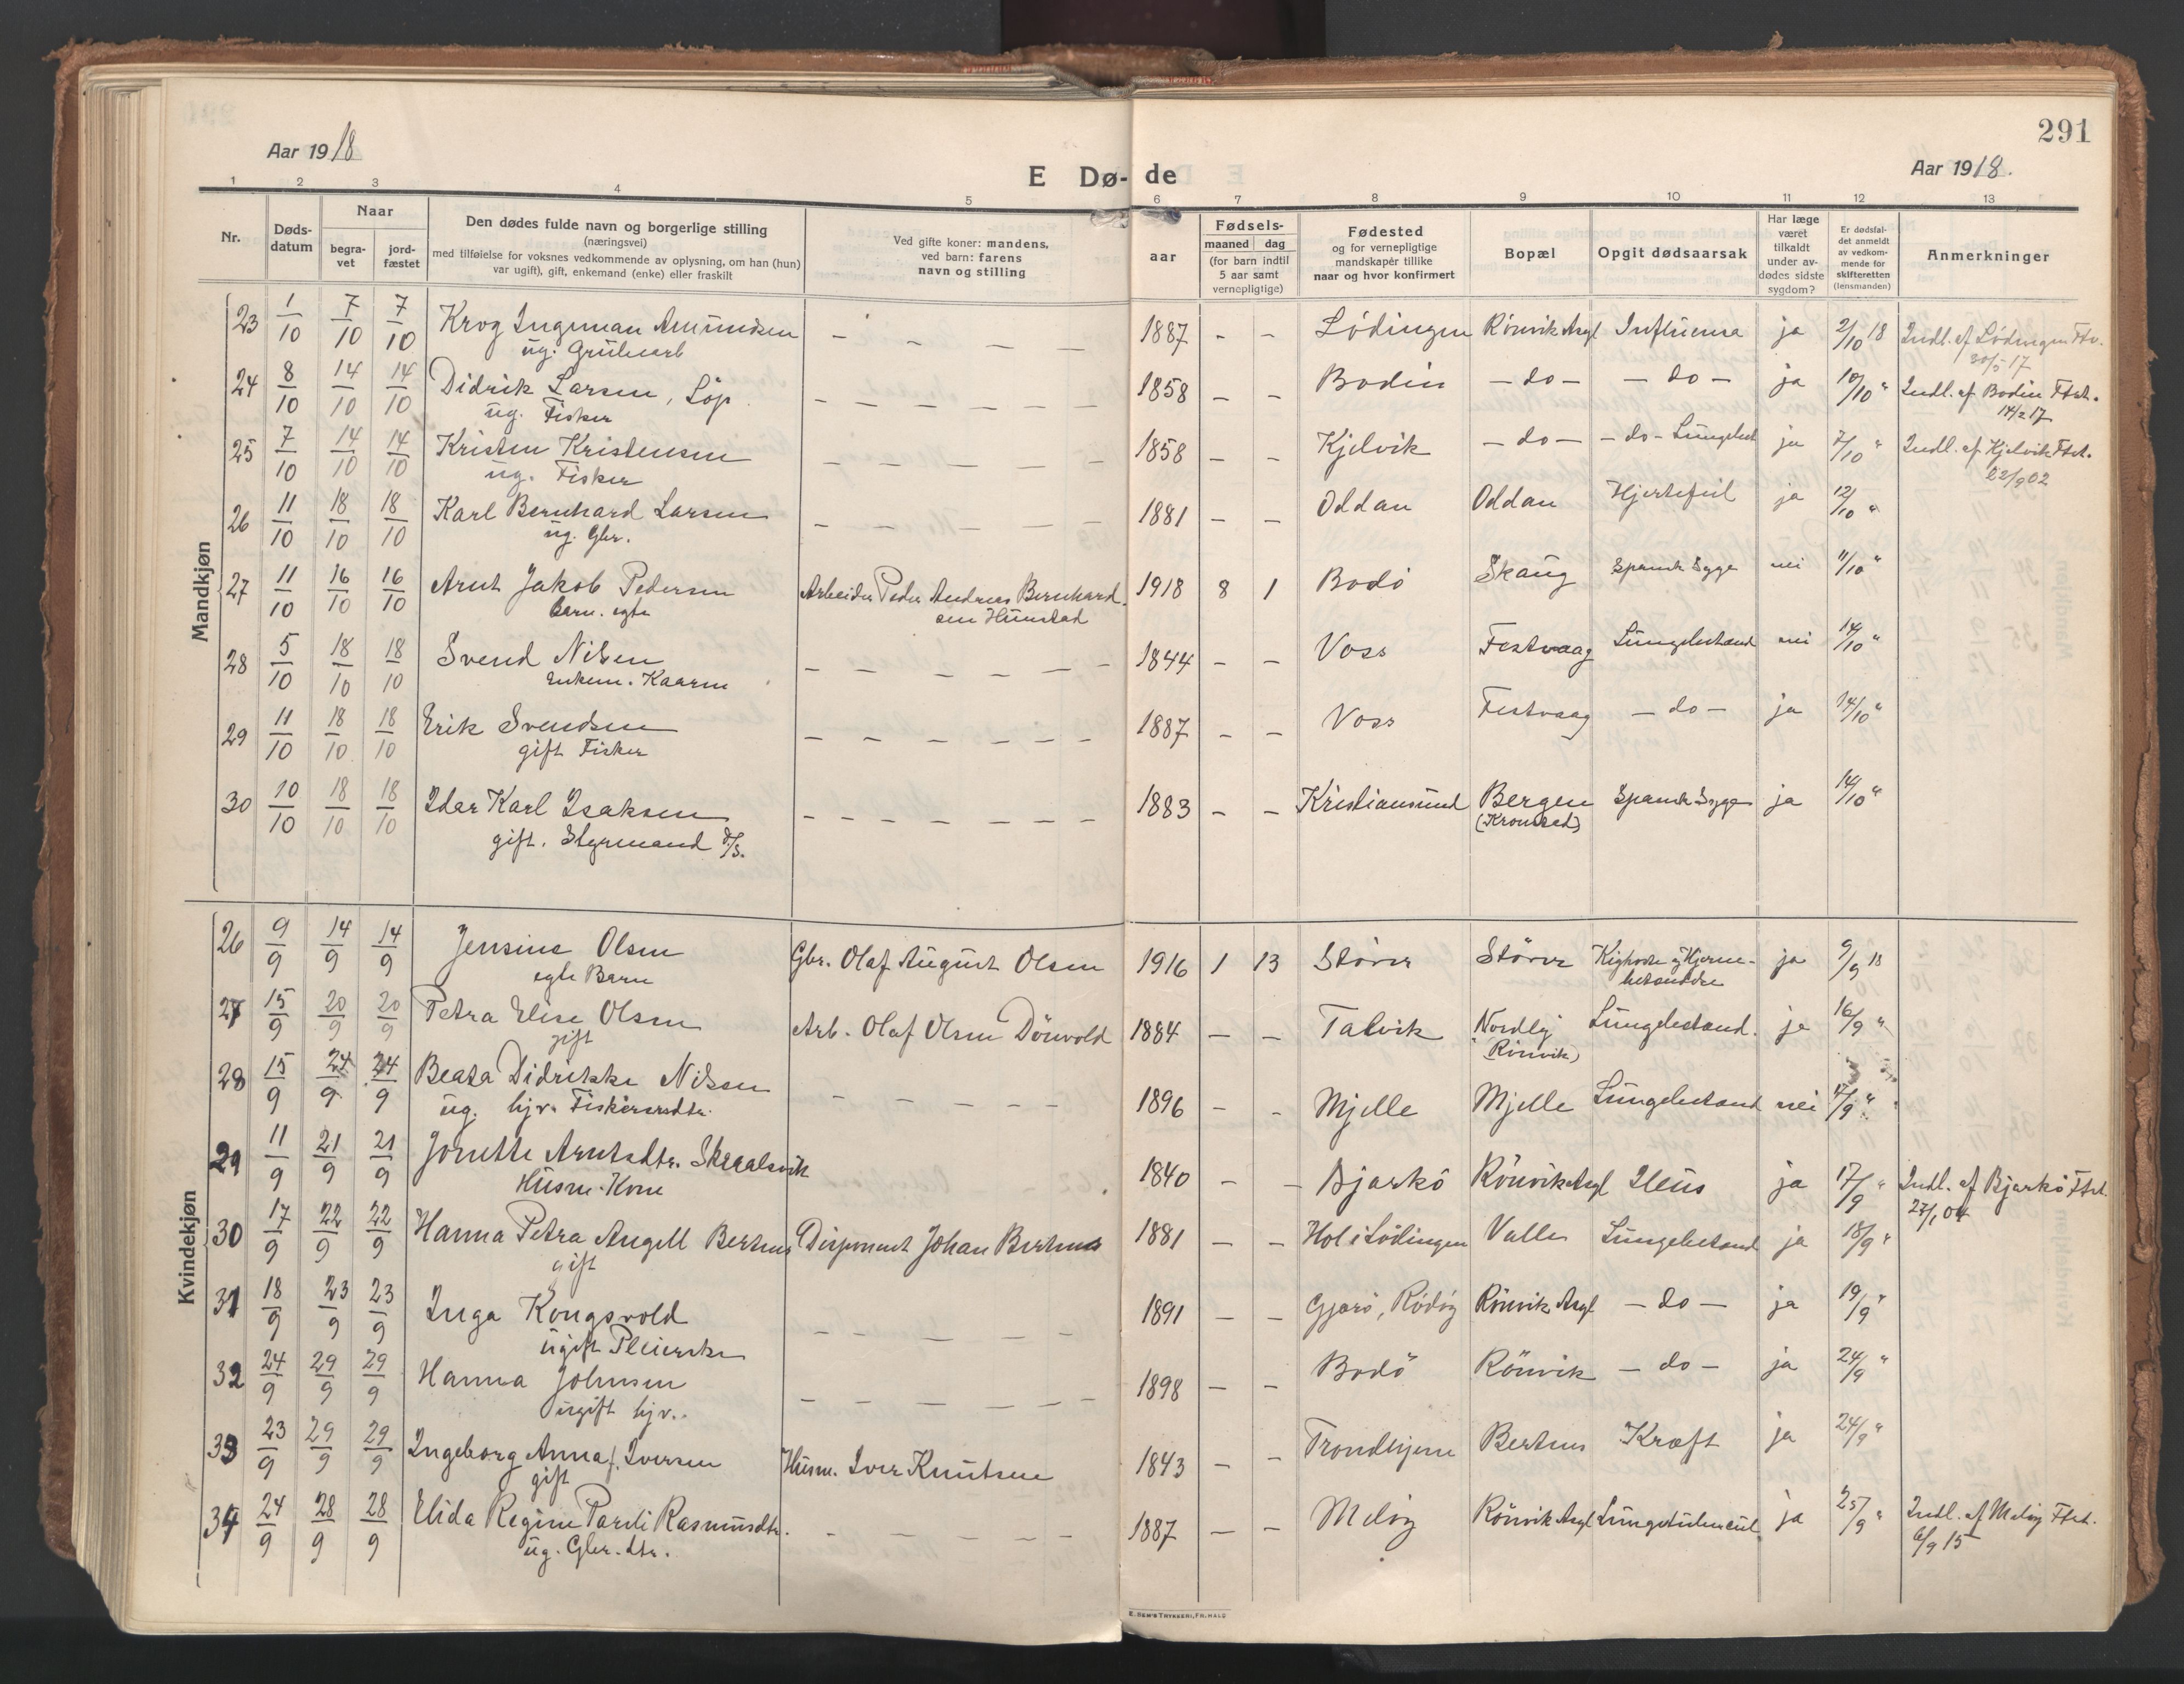 291
Aar 1918
E Dø-de
Aar 1918.
1 2 3 4 5 6 7 8 9 10 11 12 13
Nr.
Døds-
datum
Naar
begra-
vet
jord-
fæstet
Den dødes fulde navn og borgerlige stilling
(næringsvei)
med tilføielse for voksnes vedkommende av oplysning, om han (hun)
var ugift), gift, enkemand (enke) eller fraskilt
Ved gifte koner: mandens,
ved barn: farens
navn og stilling
Fødsels-
aar
maaned dag
(for barn indtil
5 aar samt
vernepligtige)
Fødested
og for vernepligtige
mandskaper tillike
naar og hvor konfirmert
Bopæl
Opgit dødsaarsak
Har læge
været
tilkaldt
under av-
dødes sidste
sygdom?
Er dødsfal-
det anmeldt
av vedkom-
mende for
skifteretten
(lensmanden)
Anmerkninger
Mandkjøn
23 1/10 7/10 7/10 Krog Ingeman Amundsen - - - - 1887 - - Lödingen Rönvik Asyl Influensa ja 2/10 18 Indl. af Lödingen Ftv.
ug. Grubearb 30/5 17
24 8/10 14/10 14/10 Didrik Larsen, Löp - - - - - - 1858 - - Bodin - do - - do - ja 10/10 " Indl. af Bodin Ftst.
ug. Fisker 14/2 17
25 7/10 14/10 14/10 Kristen Kristensen - - - - - - 1858 - - Kjelvik - do - - do - Lungebet ja 7/10 " Indl. af Kjelvik Ftst.
ug. Fisker 22/9 02
26 11/10 18/10 18/10 Karl Bernhard Larsen - - - - - - 1881 - - Oddan Oddan Hjertefeil ja 12/10 "
ug. Gbr.
27 11/10 16/10 16/10 Arnt Jakob Pedersen Arbeider Peder Andreas Bernhard- 1918 8 1 Bodö Skaug Spansk Syge nei 11/10 "
Barn. egte sen Hunstad
28 5/10 18/10 18/10 Svend Nilsen - - - - - - 1844 - - Voss Festvaag Lungebetænd nei 14/10 "
Enkem. Kaarm
29 11/10 18/10 18/10 Erik Svendsen - - - - - - 1887 - - Voss Festvaag - do - ja 14/10 "
gift Fisker
30 10/10 18/10 18/10 Idar Karl Isaksen - - - - - - - 1883 - - Kristiansund Bergen Spansk Syge ja 14/10 "
gift. Styrmand D/S. (Kronstad)
Kvindekjøn
26 9/9 14/9 14/9 Jensine Olsen Gbr. Olaf August Olsen 1916 1 13 Störer Störer Kighoste og Hjerne- ja 9/9 18
egte Barn betændelse
27 15/9 20/9 20/9 Petra Elise Olsen Arb. Olaf Olsen Dönvold 1884 - - Talvik Nordly Lungebetænd. ja 16/9 "
gift (Rönvik)
28 15/9 24/9 24/9 Beata Didrikke Nilsen - - - - - 1896 - - Mjelle Mjelle Lungebetænd nei 17/9 "
ug. hjv. Fiskersdtr.
29 11/9 21/9 21/9 Jonette Arntsdtr. Skraalsvik 1840 - - Bjarkö Rönvik Asyl Ileus ja 17/9 " Indl. af Bjarkö Ftst.
Husm. Kone 27/1 04
30 17/9 22/9 22/9 Hanna Petra Angell Bertnes Disponent Johan Bertnes 1881 - - Hol i Lödingen Valle Lungebetænd ja 18/9 "
gift
31 18/9 23/9 23/9 Inga Kongsvold - - - - - 1891 - - Gjærö, Rödöy Rönvik Asyl - do - ja 19/9 "
ugift Pleierske
32 24/9 29/9 29/9 Hanna Johnsen - - - - - - 1898 - - Bodö Rönvik - do - ja 24/9 "
ugift hjv.
33 23/9 29/9 29/9 Ingeborg Anna f. Iversen Husm. Iver Knutsen 1843 - - Trondhjem Bertnes Kræft ja 24/9 "
gift
34 24/9 28/9 28/9 Elida Regine Pareli Rasmusdtr. - - - - - 1887 - - Melöy Rönvik Asyl Lungetuberkul ja 25/9 " Indl. af Melöy Ftst.
ug. Gbr. dtr. 6/9 15
E. SEM'S TRYKKERI, FR.HALD